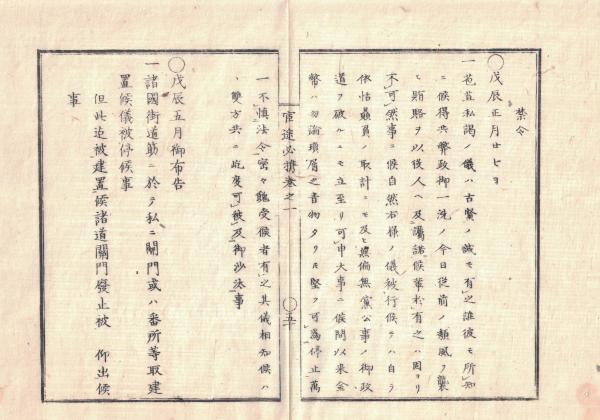 禁令
〇戊辰正月廿七日
一苞苴私謁ノ儀ハ古賢ノ誡モ有之誰彼モ所知
ニ候得共弊政御一洗ノ今日従前ノ頽風ヲ襲
ヒ賄賂ヲ以役人ヘ及讒諸候輩於有之ハ固ヨリ
不可然事ニ候自然右様ノ儀被行候テハ自ラ
依怙贔屓ノ取計ニモ及ヒ無偏無黨公事ノ御政
道ヲ破ルニモ立至リ可申大事ニ候間以来金
幣ハ勿論瑣屑之音物タリトモ堅ク可為停止萬
一不慎法令密々饋受候者有之其儀相知候ハ
、雙方共ニ屹度可被及御沙汰事
官途必携巻之一
〇五
〇戊辰五月御布告
一諸國街道筋ニ於テ私ニ關門或ハ番所等取建
置候儀被停候事
但此迄被建置候諸道關門廢止被 仰出候
事